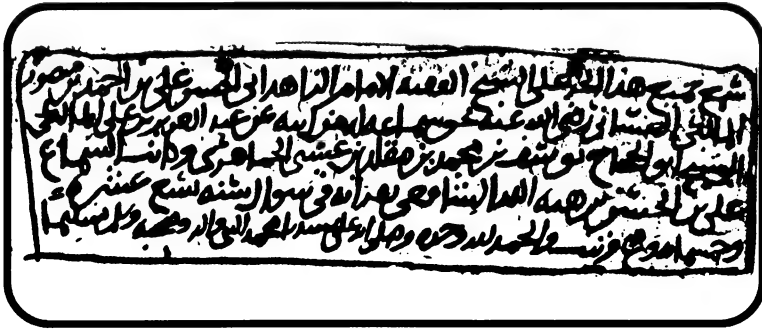 سمع جميع هذا الجزء على الشيخ الفقيه الامام الزاهد ابي الحسن علي بن احمد بن منصور
المالكي الغساني رضي الله عنه بحق سماعه له من ابيه عن عبد العزيز بن علي
الشيخ ابو الحجاج يوسف بن محمد بن مقلد بن عيسى الجماهري وكاتب السماع
علي بن الحسن بن هبة الله الشافعي بقراءته في شوال سنة تسع عشرة
وخمسمائة والحمد لله وحده وصلواته على سيدنا محمد النبي واله وصحبه وسلم تسليما